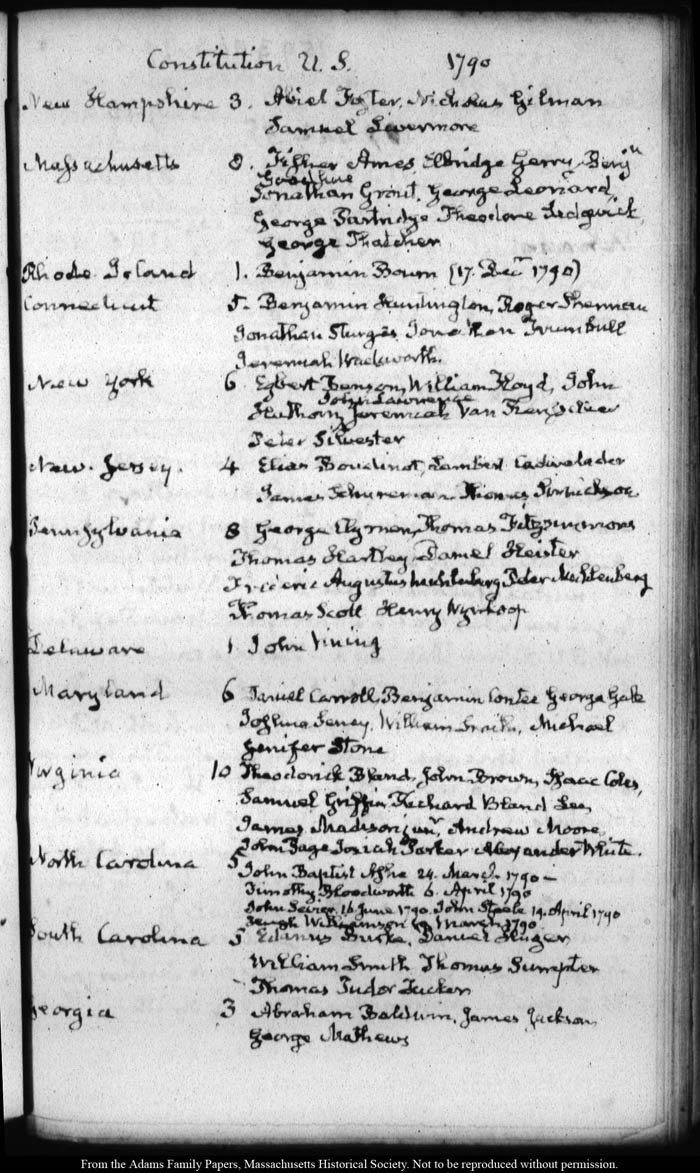 Constitution U. S. 1790
New Hampshire 3. Abiel Foster, Nicholas Gilman
Samuel Livermore
Massachusetts 8. Fisher Ames, Elbridge Gerry, Benjn
Goodhue
Jonathan Grout, George Leonard,
George Partridge Theodore Sedgwick,
George Thatcher
Rhode Island 1. Benjamin Bourn (17. Decr 1790)
Connecticut 5. Benjamin Huntington, Roger Sherman
Jonathan Sturges, Jonathan Trumbull
Jeremiah Wadsworth.
New York 6 Egbert Benson, William Floyd, John
John Lawrence
Hathorn, Jeremiah Van Rensselaer
Peter Silvester
New Jersey. 4 Elias Boudinot, Lambert Cadwalader
James Schureman, Thomas Sinnickson
Pennsylvania 8 George Clymer, Thomas Fitzsimmons
Thomas Hartley, Daniel Heister
Frederic Augustus Muhlenburg, Peter Muhlenberg
Thomas Scott Henry Wynkoop
Delaware 1. John Vining
Maryland 6 Daniel Carroll, Benjamin Contee George Gale
Joshua Seney, William Smith, Michael
Jenifer Stone
Virginia 10 Theodorick Bland, John Brown, Isaac Coles,
Samuel Griffin, Richard Bland Lee,
James Madison junr, Andrew Moore,
John Page Josiah Parker Alexander White.
North Carolina 5 John Baptist Ashe 24. March 1790 —
Timothy Bloodworth 6. April 1790
John Sevier, 16 June 1790. John Steele 19. April 1790
Hugh Williamson March 1790
South Carolina 5 Edanus Burke, Daniel Huger
William Smith Thomas Sumpter
Thomas Tudor Tucker
Georgia 3 Abraham Baldwin, James Jackson,
George Mathews
From the Adams Family Papers, Massachusetts Historical Society. Not to be reproduced without permission.